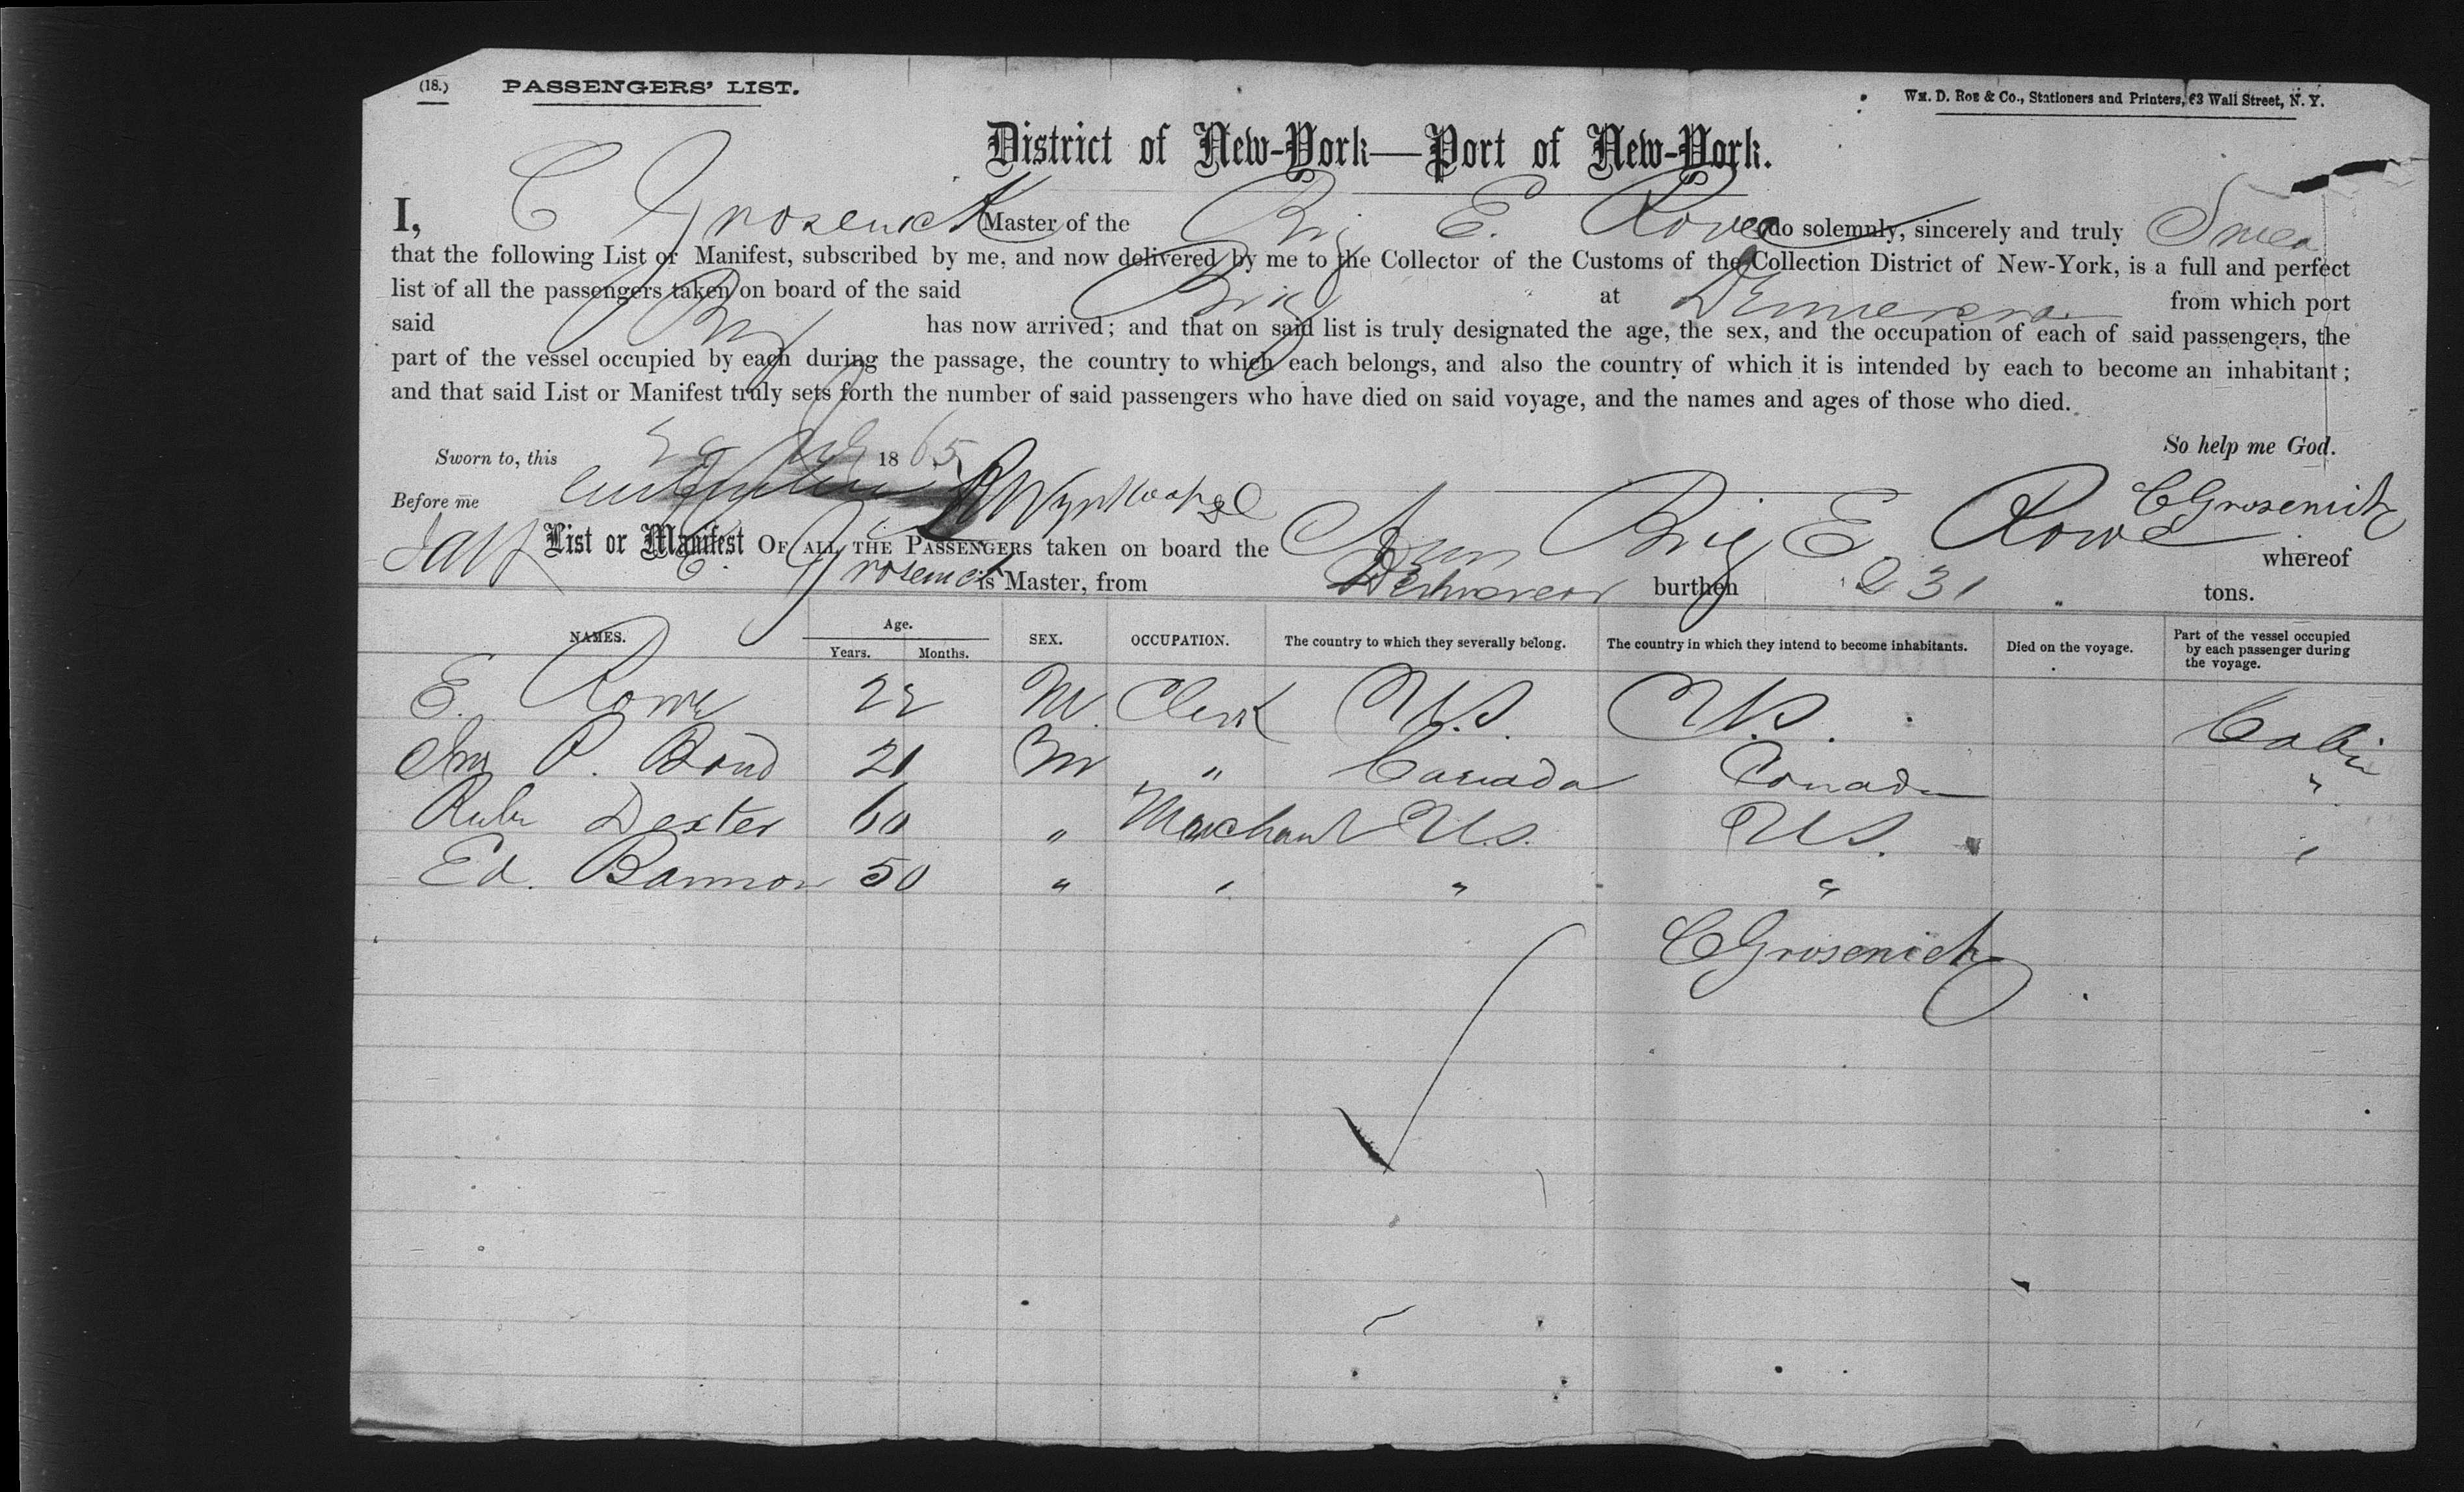 (18.) PASSENGERS' LIST. Wm. D. Roe & Co., Stationers and Printers, 63 Wall Street, N. Y.
District of New-York—Port of New-York.
I, C Grosenick Master of the Brig E. Rowe do solemnly, sincerely and truly Swear
that the following List or Manifest, subscribed by me, and now delivered by me to the Collector of the Customs of the Collection District of New-York, is a full and perfect
list of all the passengers taken on board of the said Brig at Demerara from which port
said Brig has now arrived; and that on said list is truly designated the age, the sex, and the occupation of each of said passengers, the
part of the vessel occupied by each during the passage, the country to which each belongs, and also the country of which it is intended by each to become an inhabitant;
and that said List or Manifest truly sets forth the number of said passengers who have died on said voyage, and the names and ages of those who died.
So help me God.
Sworn to, this 1865
Before me C Grosenick
List or Manifest OF ALL THE PASSENGERS taken on board the Am Brig E. Rowe whereof
C. Grosenick is Master, from Demerara burthen 231 tons.
NAMES. Age. Years. Months. SEX. OCCUPATION. The country to which they severally belong. The country in which they intend to become inhabitants. Died on the voyage. Part of the vessel occupied by each passenger during the voyage.
E. Rowe 22 M. Clerk U.S. U.S. Cabin
Jno P. Bond 21 M " Canada Canada "
Rubn Dexter 60 " Merchant U.S. U.S. "
Ed. Bannon 50 " " " "
C Grosenick